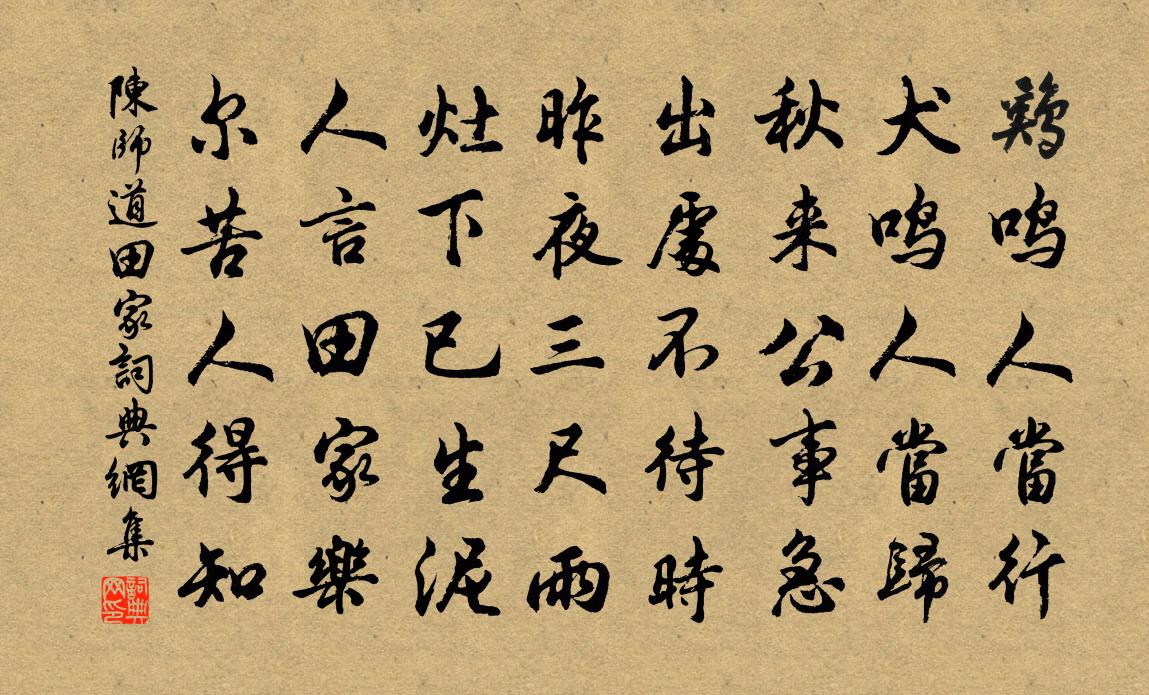 鷄鸣人當行
犬鸣人當歸
秋来公事急
出處不待時
昨夜三尺雨
灶下已生泥
人言田家樂
尔苦人得知
陳師道田家詞典網集
詞典网印